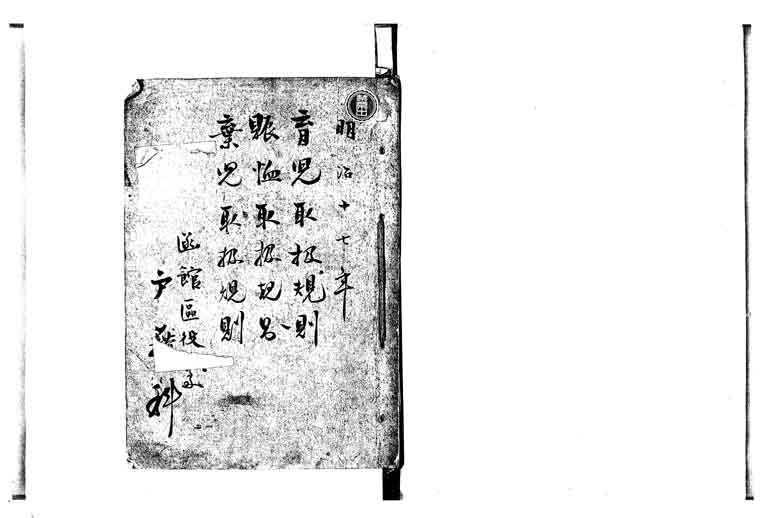 明治十七年
育児取扱規則
賑恤取扱規則
棄児取扱規則
函館區役
戸 科